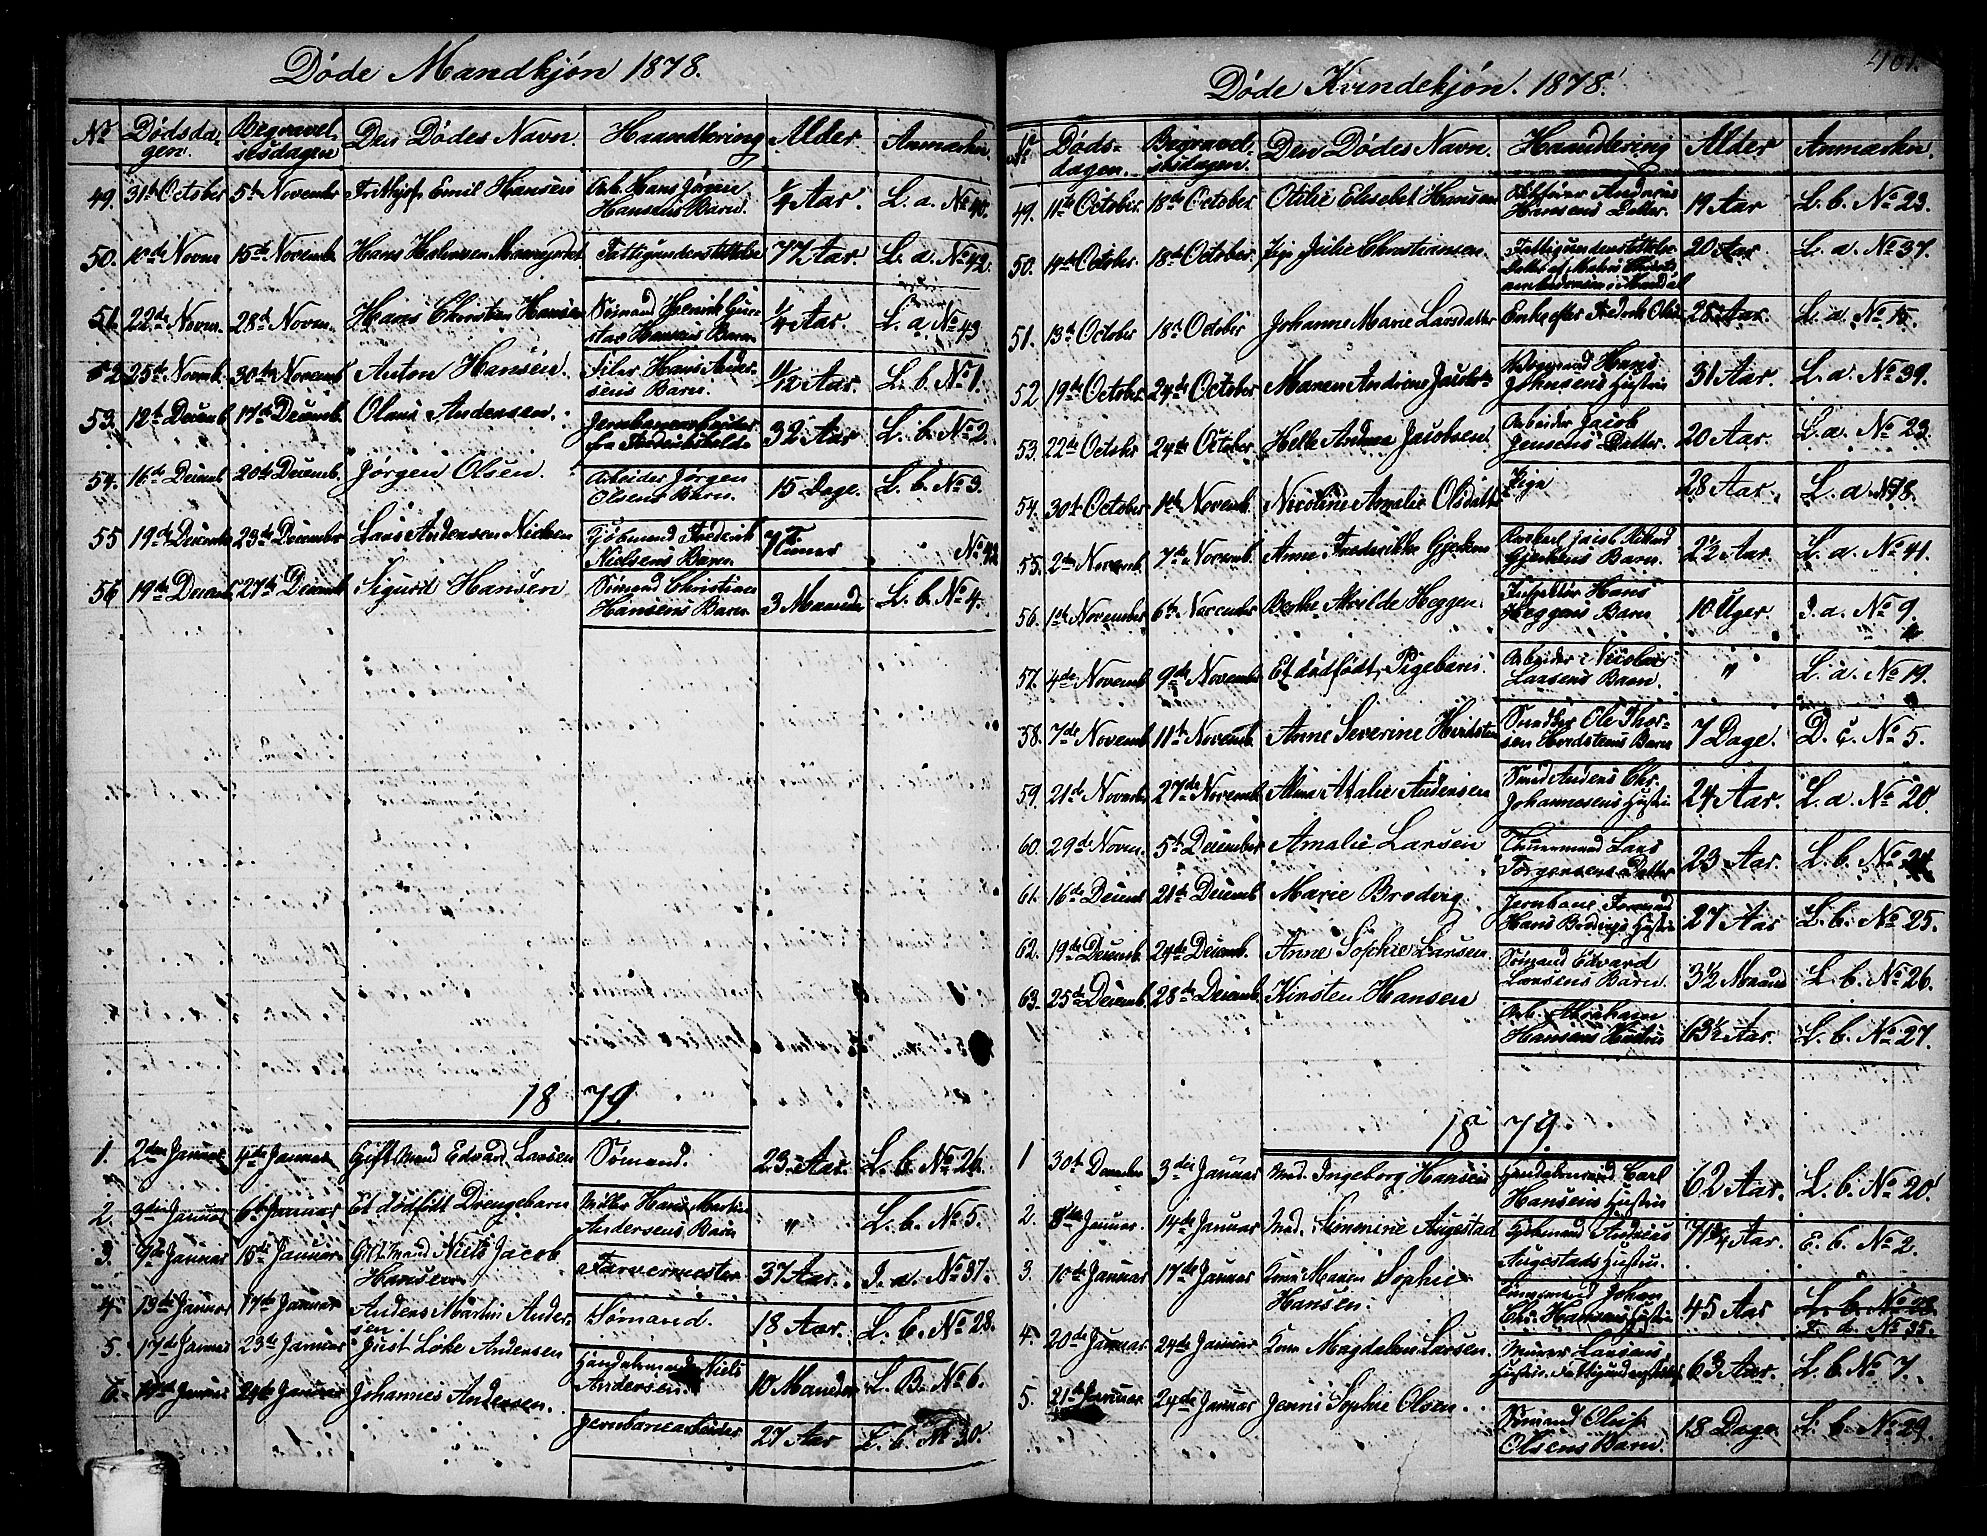 Døde Mandkjøn 1878.
No Dødsda-gen. Begravel-sesdagen Den Dødes Navn. Haandtering Alder. Anmærkn.
49. 31te October 5te Novembr Frithjof Emil Hansen Arb. Hans Jørgen Hansens Barn. 1/4 Aar. L. a. No 40.
50. 10de Novm 15de Novemb. Hans Halvorsen Fattigunderstøttelse 77 Aar. L. a. No 42.
51. 22de Novm. 28de Novm. Hans Christian Hansen Sømand Henrik Gus-tav Hansens Barn 1/4 Aar. L. a. No 43
52. 25de Novemb. 30te Novemb Anton Hansen. Filer Hans Ander-sens Barn. 11/12 Aar. L. b. No 1.
53. 12te Decemb 17de Decemb. Olaus Andersen. Jernbanearbeider fra Frederikshald 32 Aar L. b. No 2.
54. 16de Decemb 20de Decemb. Jørgen Olsen. Arbeider Jørgen Olsens Barn. 15 Dage. L. b. No 3.
55 19de Decemb 23de December Lars Andersen Nielsen Gjøbmand Frederik Nielsens Barn 7 Timer No 42
56 19de Decemb. 27de Decemb Sigurd Hansen Sømand Christian Hansens Barn 3 Maander L. b. No 4.
1879.
1. 2den Januar 4de Januar Gift Mand Edvard Larsen Sømand. 23 Aar. L. b. No 26.
2. 3die Januar 6te Januar Et dødfødt Drengebarn Møller Hans Martin Andersens Barn " L. b. No 5.
3. 9de Januar 15de Januar Gift Mand Niels Jacob Hansen Farvermester 37 Aar. I. a. No 37.
4. 13de Januar 17de Januar Anders Martin Ander-sen Sømand. 18 Aar. L. b. No 28.
5. 17de Januar 23de Januar Just Loke Andersen Handelsmand Niels Andersen 10 Maander L. B. No 6.
6. 19de Januar 24de Januar Johannes Andersen. Jernbanearbeider 27 Aar L. b. No 30.
401.
Døde Kvindekjøn. 1878.
No Døds-dagen. Begravel-sesdagen. Den Dødes Navn. Haandtering Alder Anmærkn.
49. 11te October. 18de October. Otilie Elisebet Hansen Andreas Hansens Datter. 19 Aar L. b. No 23.
50. 14de October. 18de October. Pige Julie Christiansen. Fattigunderstøttelse Datter af 20 Aar L. a. No 37.
51. 13de October 18de October Johanne Marie Larsdatter Enke efter Fredrik Olsen 28 Aar. L. a. No 15.
52 19de October. 24de October. Maren Andrine Jacobs. Hans Johnsens Hustru 31 Aar. L. a. No 39.
53. 22de October 24de October. Helle Andrea Jacobsen. Arbeider Jacob Jensens Datter. 20 Aar. L. a. No 23
54. 30te October 1ste Novemb. Nicoline Amalie Olsdatter Pige 28 Aar. L. a. No 18.
55. 2den Novemb. 7de Novemb. Anne Fredrikke Gjerlem Jacob Gjerlems Barn. 2 1/2 Aar. L. a. No 41.
56. 1ste November 6te November Berthe Alvilde Heggen. Inspektør Hans Heggens Barn 10 Uger. I. a. No 9.
57. 4de Novemb 9de Novemb Et dødfødt Pigebarn Arbeider Nicolai Larsens Barn. " L. a. No 19.
58. 7de Novemb 11te Novemb. Anne Severine Hvidsten Snedker Ole Thor-sen Hvidstens Barn 7 Dage. D. c. No 5.
59. 21de Novemb 27de Novemb. Alma Atalie Andersen Smed Anders Chr. Johannesens Hustru 24 Aar. L. a. No 20
60. 29de Novm. 5te December Amalie Larsen Lars Jørgensens Datter 23 Aar. L. b. No 24.
61. 16de Decemb 21de Decemb Marie Brodvig Jernbane Formand Hans Brodvigs Hustru 27 Aar L. b. No 25.
62. 19de Decemb. 24de Decemb. Anne Sophie Larsen. Sømand Edvard Larsens Barn. 3 1/2 Maand L. b. No 26.
63. 25de Decemb. 28de Decemb. Kirsten Hansen Arb. Abraham Hansens Hustru 63 1/2 Aar. L. b. No 27.
1879.
1 30te December 3die Januar Mad. Ingeborg Hansen Handelsmand Carl Hansens Hustru 62 Aar. L. b. No 20.
2. 8de Januar. 14de Januar Mad. Simmine Augestad Gjøbmand Andreas Augestads Hustru. 71 3/4 Aar. E. b. No 2.
3. 10de Januar 17de Januar Kone Maren Sophie Hansen. Tømmermand Johan Chr. Hansens Hustru 45 Aar L. b. No 28. F. d. No 35.
4. 20de Januar 24de Januar Kone Magdalene Larsen. Murer Larsens Hustru, Fattigunderstøttet 63 Aar. L. b. No 7.
5. 21de Januar 24de Januar Jenni Sophie Olsen. Sømand Oluf Olsens Barn. 18 Dage. L. b. No 29.